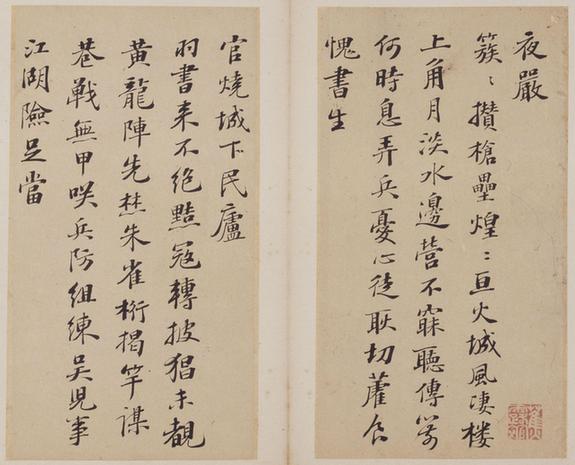 夜嚴
簇〻攢槍壘煌〻亘火城風凄楼
上角月淡水邊營不寐聽傳箭
何時息弄兵憂心徒耿切藿食
愧書生
官燒城下民廬
羽書来不绝黠寇轉披猖未覩
黄龍陣先焚朱雀桁揭竿謀
巷戰無甲咲兵防組練吴児事
江湖險足當